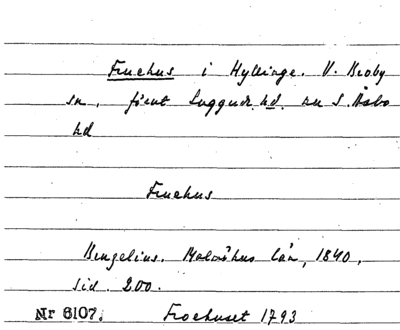 Fruehus i Hyllinge. V. Broby
sn, förut Luggude hd. nu S. Åsbo
hd
Fruehus
Bengelius. Malmöhus län, 1840,
sid. 200.
Nr 6107. Froehuset 1793